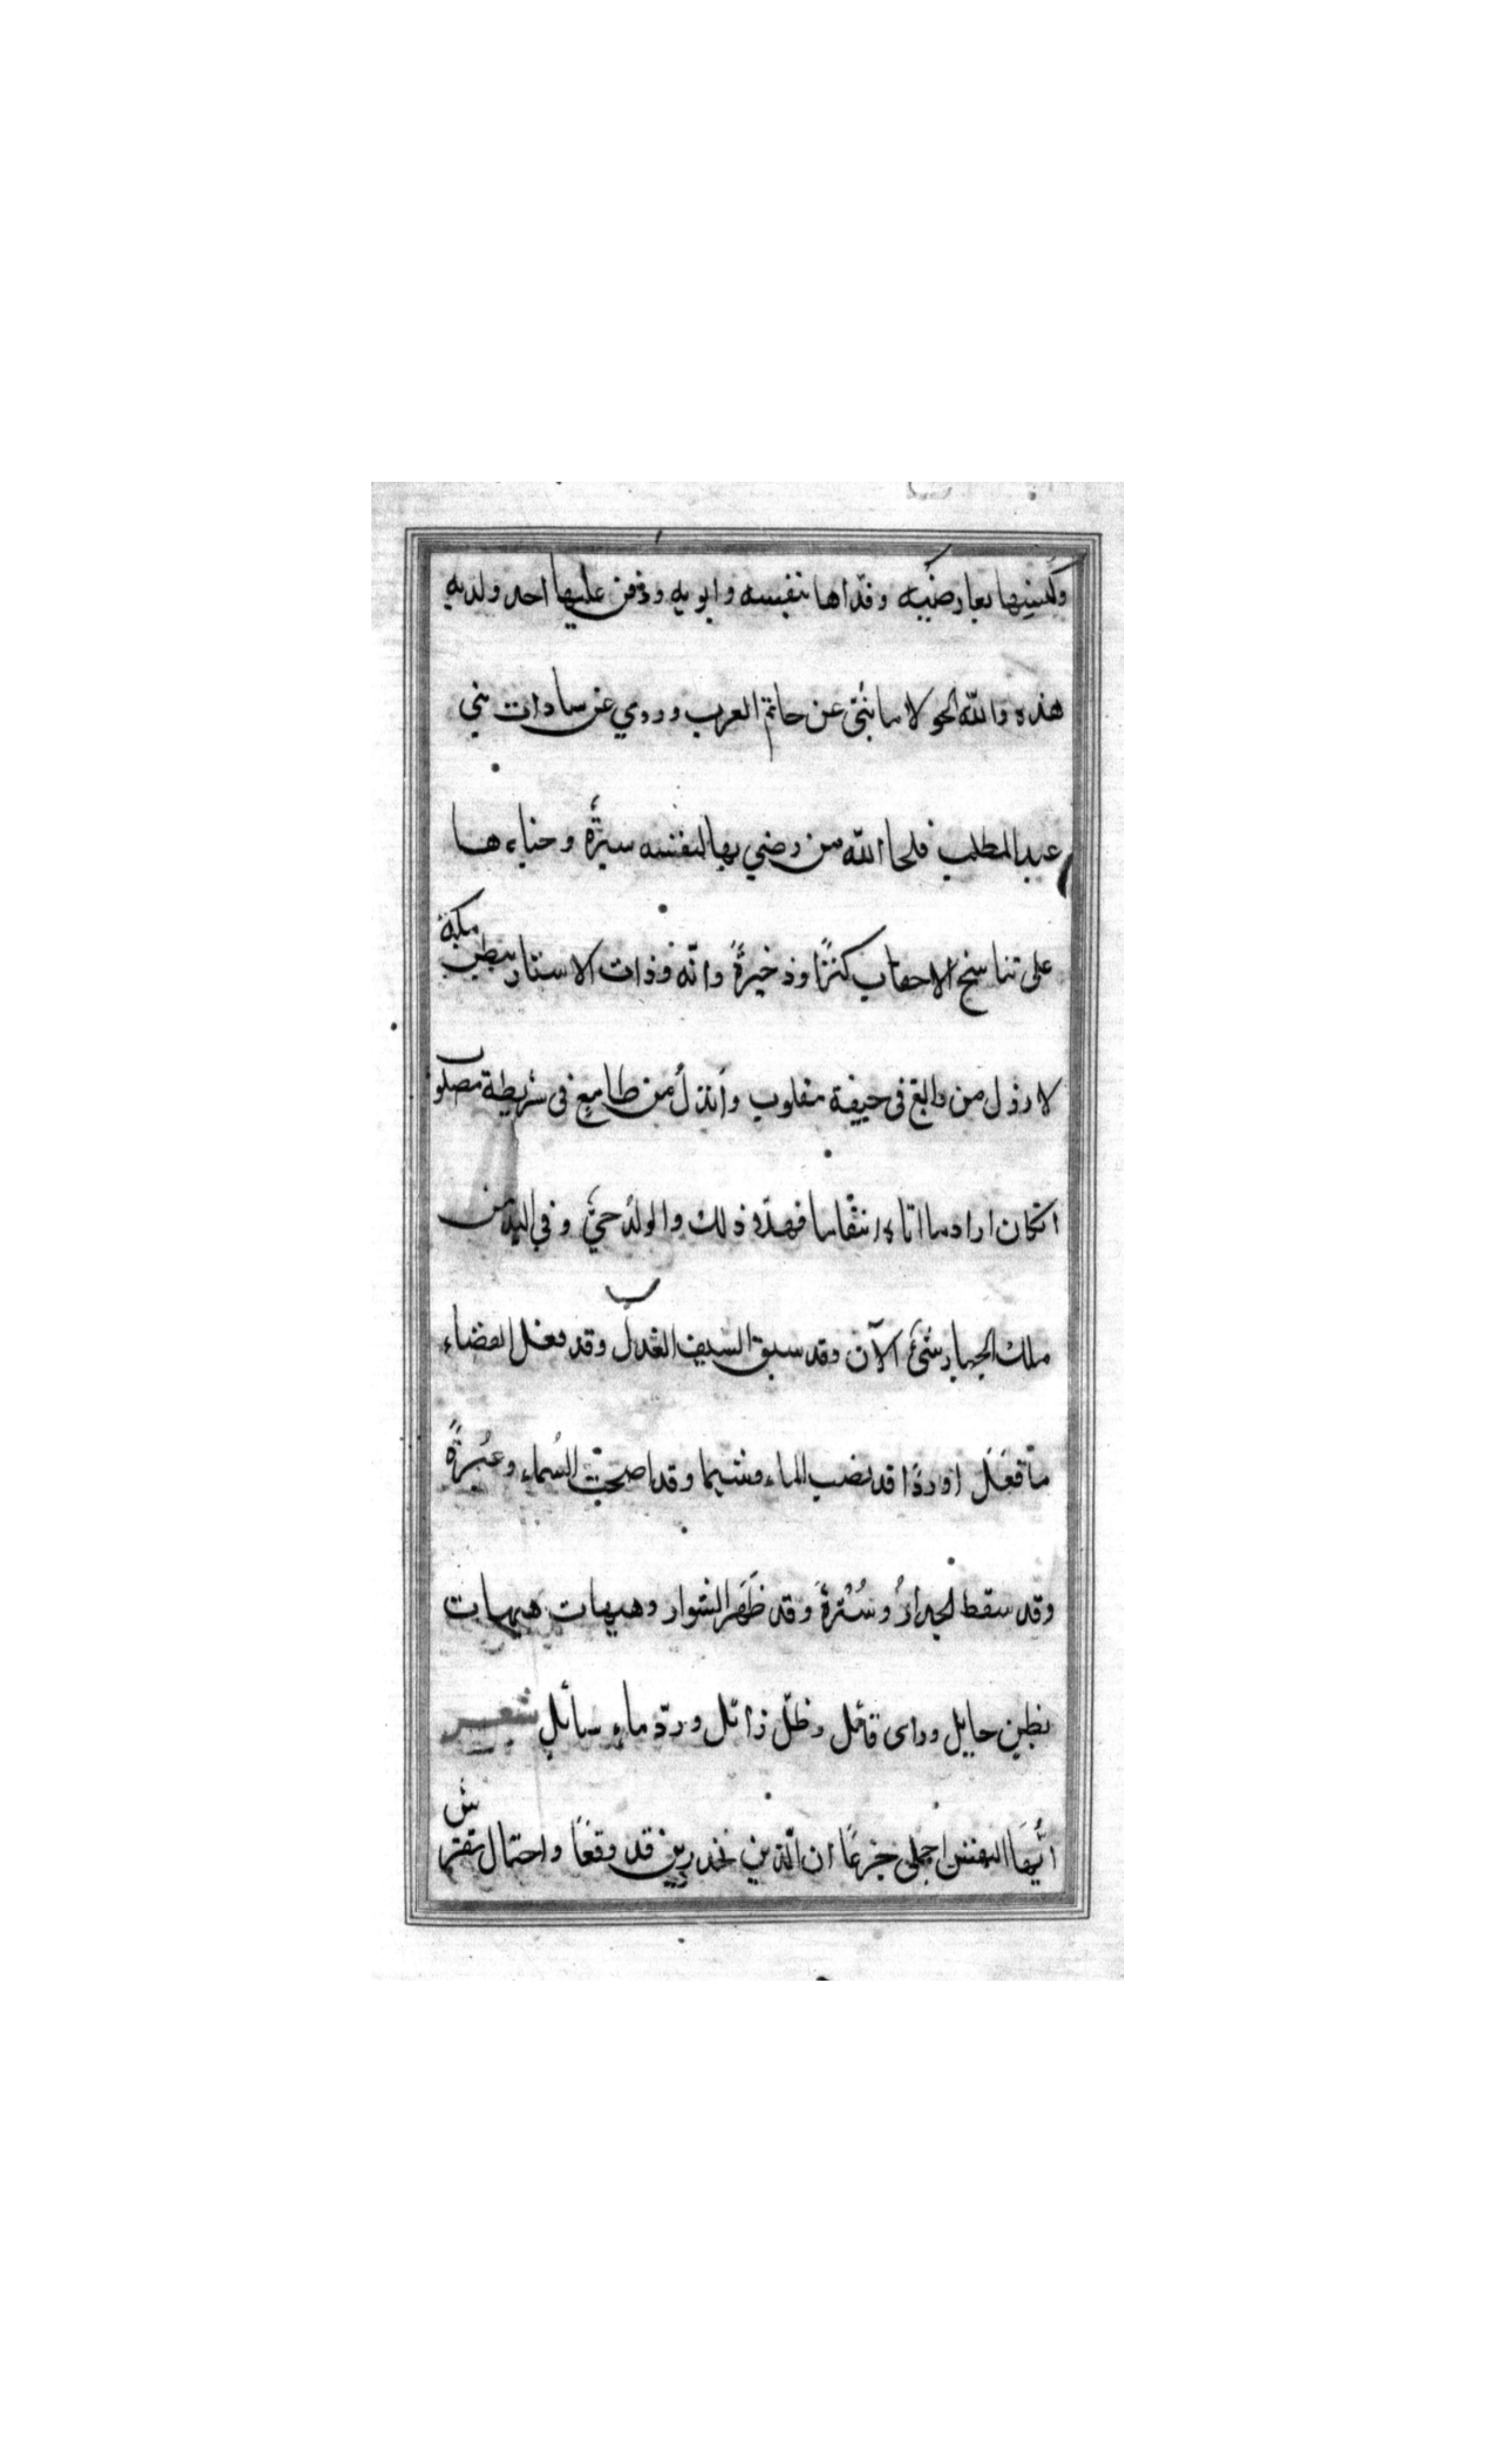 وكنسها بعارضيه وفدّاها بنفسه وابويه ودفن عليها احد ولديه
هذه والله الحو لا ما بنئ عن حاتم العرب وروي عن سادات بني
عبد المطلب فلحا الله من رضي بها لنفسه سيرةً وخباءها
على تناسخ الاحقاب كنزًا وذخيرةً وانّه وذات الاستار ببطن مكة
لارذل من والغ فى جيفة مقلوب وأنذلُ من طامع فى شريطة مصلوب
انكان ارادما اتاه انتقاما فهدّه ذلك والولدُ حيٌّ وفي اليد من
ملك الجبار شئ الآن وقد سبق السيف العذل وقد فعل القضاء
ما فعَلَ اوردًا قد نضب الماء وشيما وقد اصحت السماء وعبرةً
وقد سقط الجدارُ وسُترةً وقد ظَهَر الشوار وهيهات هيهات
بطين حايل وراى قائل وظلّ زائل وردّ ماء سائل شعر
أيّها النفس اجملى جزعًا ان الّذين تحذرين قد وقعًا واحتمال